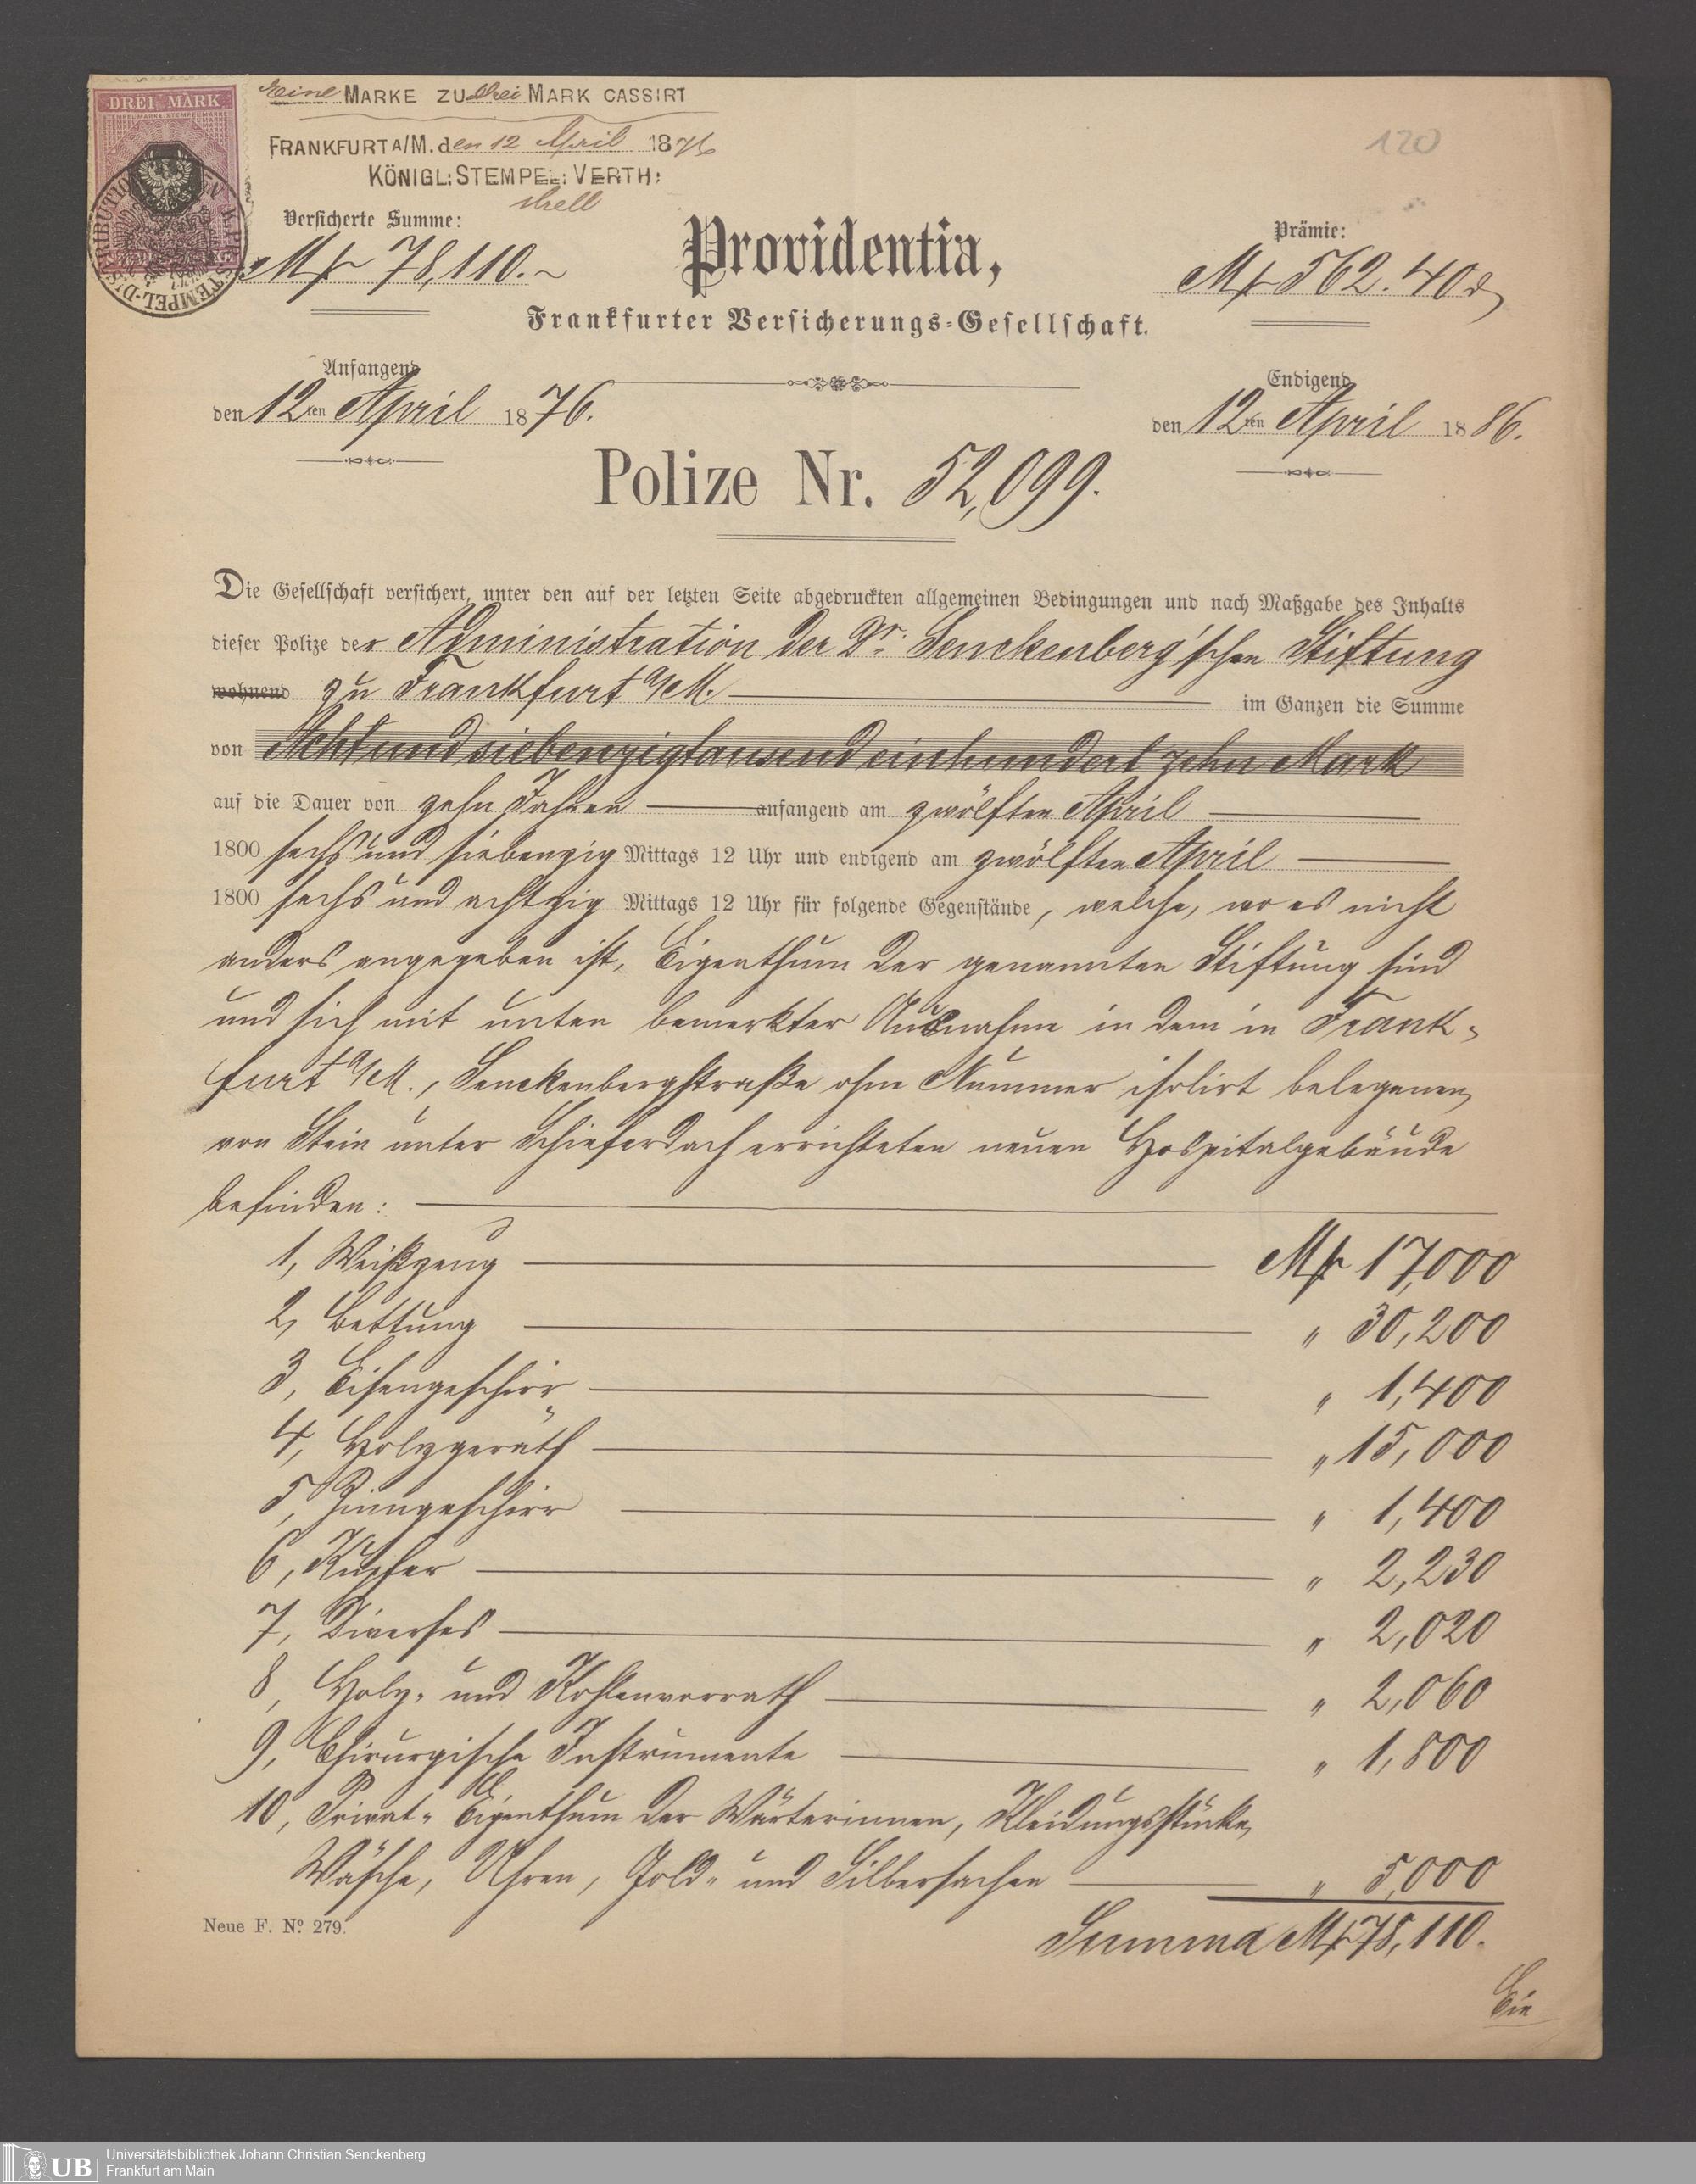 DREI MARK
Eine MARKE ZU drei MARK CASSIRT
FRANKFURT A/M. den 12 April 1876
KÖNIGL: STEMPEL: VERTH:
120
Versicherte Summe:
Mk 78,110.~
Providentia,
Frankfurter Versicherungs-Gesellschaft.
Prämie:
Mk 562.40 ₰
Anfangend
den 12ten April 1876.
Endigend
den 12ten April 1886.
Polize Nr. 52,099.
Die Gesellschaft versichert, unter den auf der letzten Seite abgedruckten allgemeinen Bedingungen und nach Maßgabe des Inhalts
dieser Polize der Administration der Dr. Senckenberg'schen Stiftung
wohnend zu Frankfurt a/M. im Ganzen die Summe
von Achtundsiebenzigtausend einhundert zehn Mark
auf die Dauer von zehn Jahren anfangend am zwölften April
1800 sechs und siebenzig Mittags 12 Uhr und endigend am zwölften April
1800 sechs und achtzig Mittags 12 Uhr für folgende Gegenstände, welche, wo es nicht
anders angegeben ist, Eigenthum der genannten Stiftung sind
und sich mit unten bemerkter Ausnahme in dem in Frank-
furt a/M., Senckenbergstraße ohne Nummer isolirt belegenen,
von Stein unter Schieferdach errichteten neuen Hospitalgebäude
befinden:
1, Weißzeug Mk 17,000
2, Bettung " 30,200
3, Eisengeschirr " 1,400
4, Holzgeräth " 15,000
5, Zinngeschirr " 1,400
6, Kupfer " 2,230
7, Diverses " 2,020
8, Holz- und Kohlenvorrath " 2,060
9, Chirurgische Instrumente " 1,800
10, Privat-Eigenthum der Wärterinnen, Kleidungsstücke,
Wäsche, Uhren, Gold- und Silbersachen " 5,000
Neue F. No. 279.
Summa Mk 78,110.
Ein
UB
Universitätsbibliothek Johann Christian Senckenberg
Frankfurt am Main